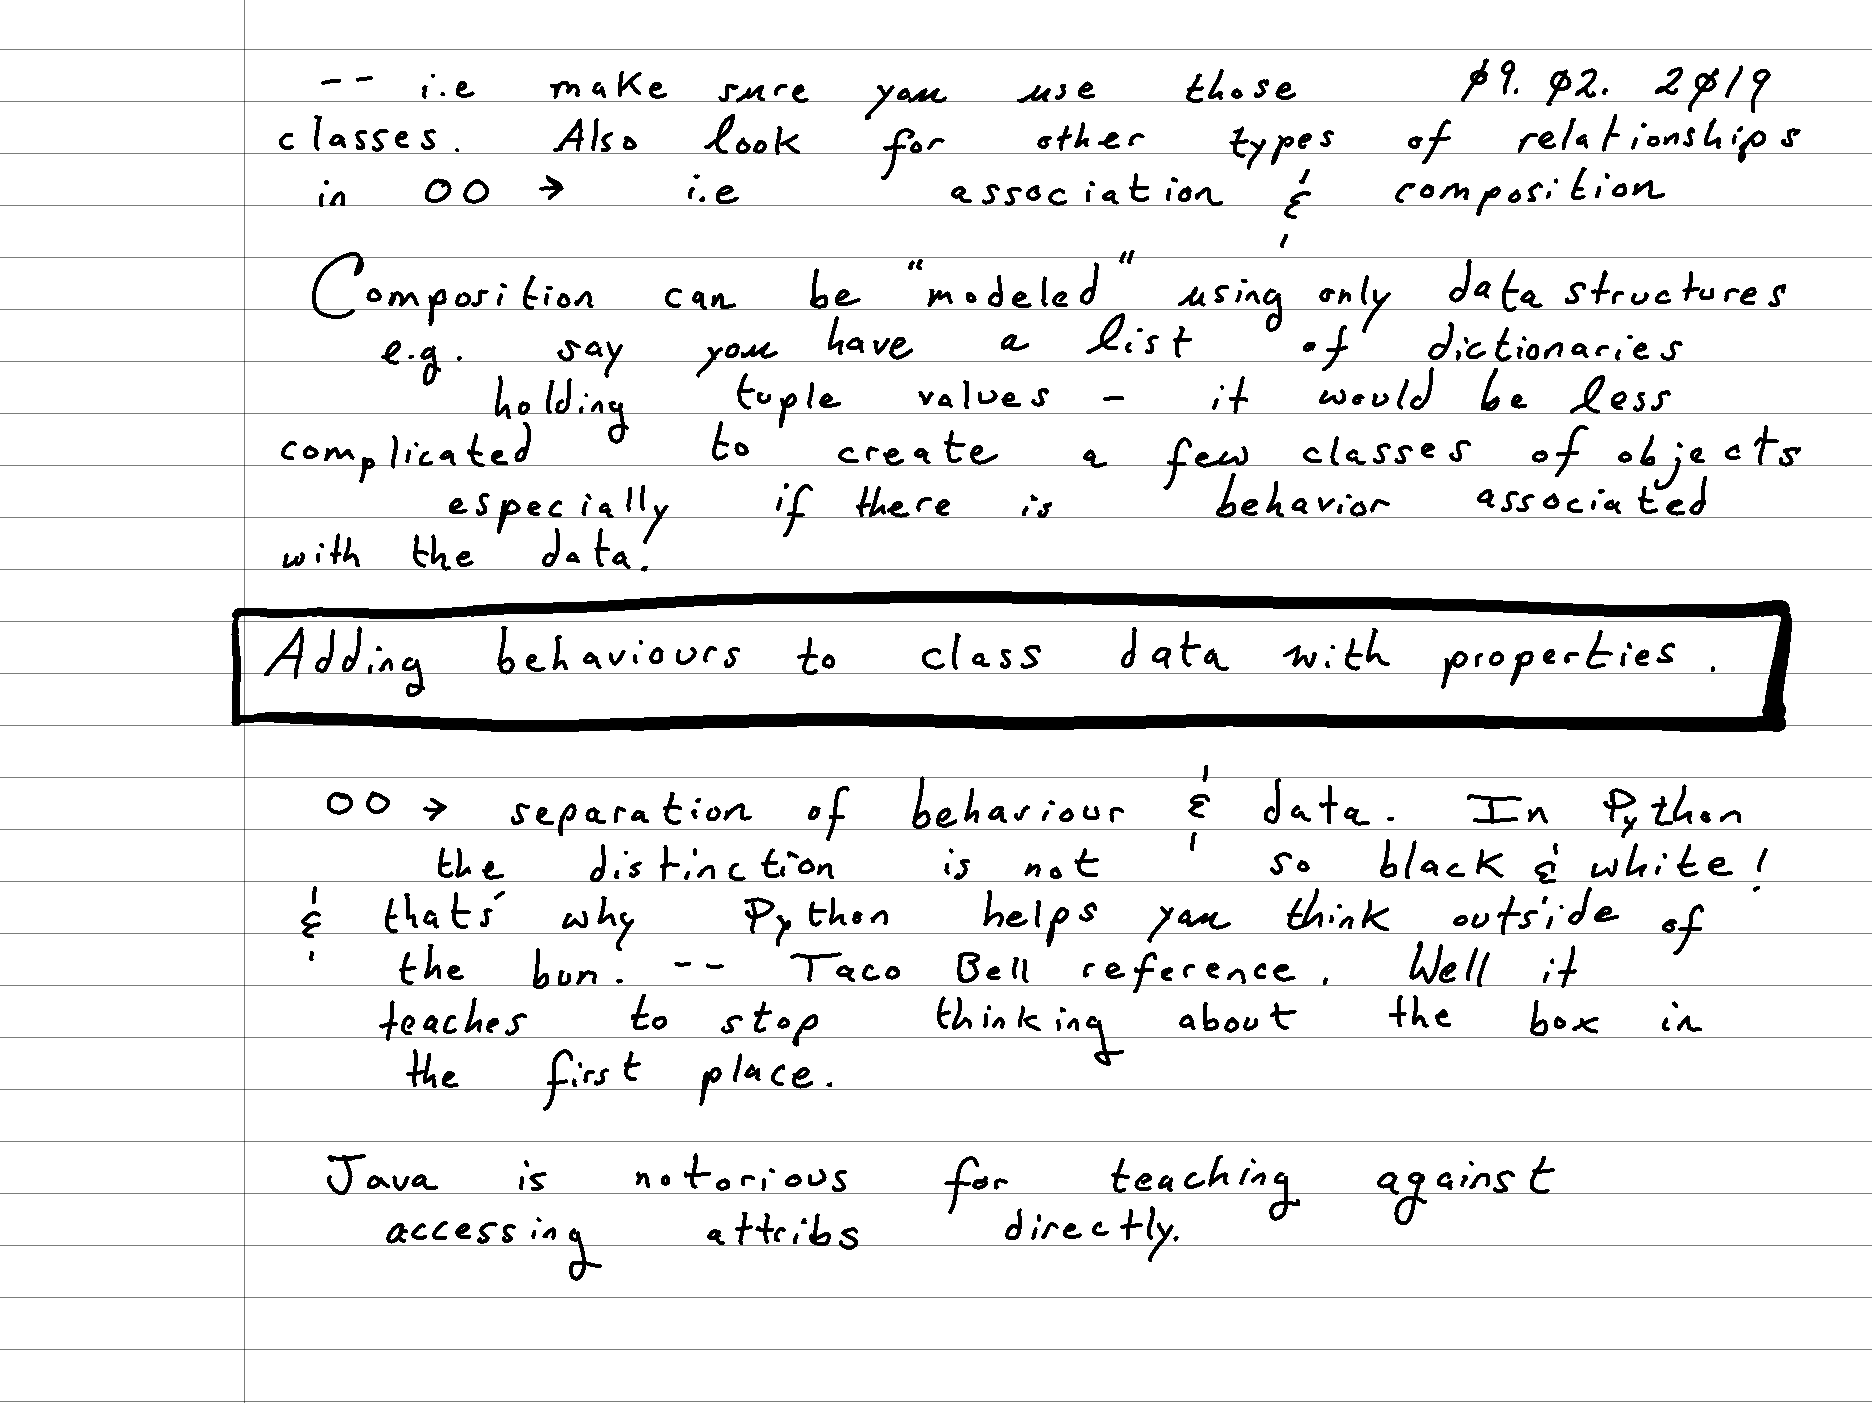 -- i.e make sure you use those 09. 02. 2019
classes. Also look for other types of relationships
in OO → i.e association & composition
Composition can be "modeled" using only data structures
e.g. say you have a list of dictionaries
holding tuple values - it would be less
complicated to create a few classes of objects
especially if there is behavior associated
with the data!
Adding behaviours to class data with properties.
OO → separation of behaviour & data. In Python
the distinction is not so black & white!
& thats' why Python helps you think outside of
the bun. -- Taco Bell reference. Well it
teaches to stop thinking about the box in
the first place.
Java is notorious for teaching against
accessing attribs directly.